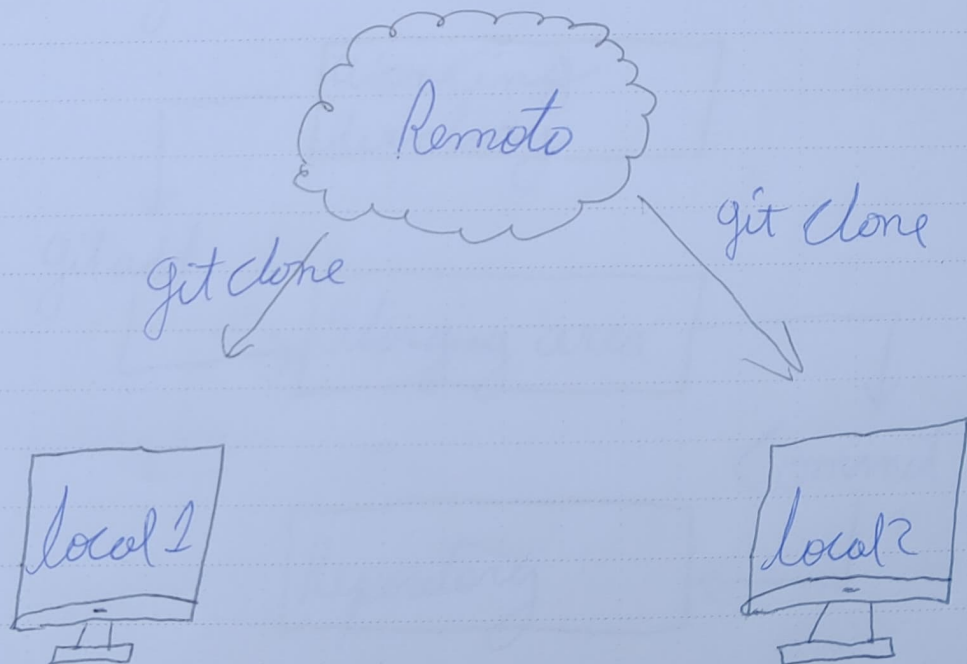 Remoto
git clone
git clone
local 1
local 2